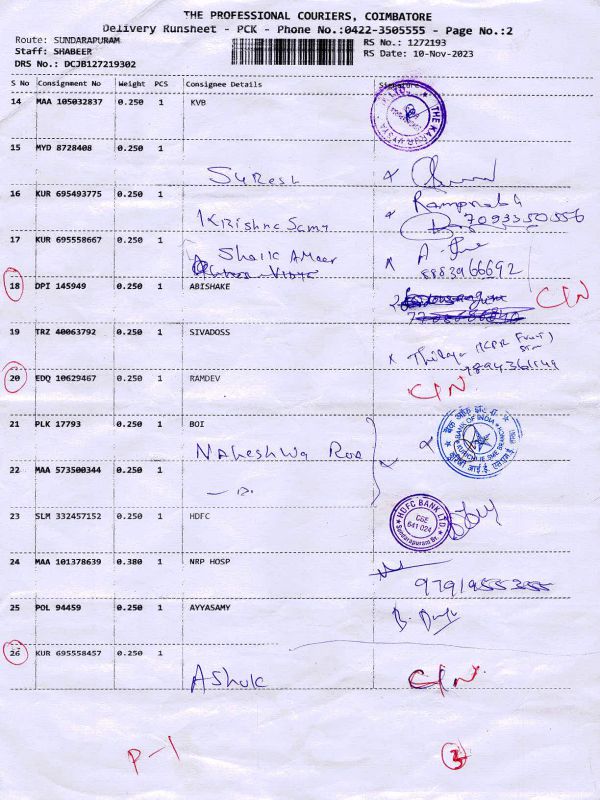 THE PROFESSIONAL COURIERS, COIMBATORE
Delivery Runsheet - PCK - Phone No.:0422-3505555 - Page No.:2
Route: SUNDARAPURAM
RS No.: 1272193
Staff: SHABEER
RS Date: 10-Nov-2023
DRS No.: DCJB127219302
S No Consignment No Weight PCS Consignee Details Signature
14 MAA 105032837 0.250 1 KVB
15 MYD 8728408 0.250 1
Suresh
16 KUR 695493775 0.250 1
Krishna Samy
7093350556
17 KUR 695558667 0.250 1
Shaik Ameer
8883966692
18 DPI 145949 0.250 1 ABISHAKE C/N
19 TRZ 40063792 0.250 1 SIVADOSS
20 EDQ 10629467 0.250 1 RAMDEV
C/N
21 PLK 17793 0.250 1 BOI
BANK OF INDIA
Maheshwa Rao
22 MAA 573500344 0.250 1
23 SLM 332457152 0.250 1 HDFC
HDFC BANK LTD.
CBE
641 024
Sundarapuram Br.
24 MAA 101378639 0.380 1 NRP HOSP
9791955355
25 POL 94459 0.250 1 AYYASAMY
26 KUR 695558457 0.250 1
Ashok C/N
P-1 3